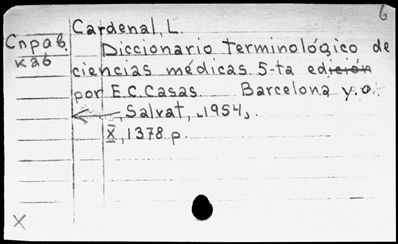 6
Cardenal, L.
Справ.
каб
Diccionario terminológico de
ciencias médicas. 5-ta edición
por E.C. Casas. Barcelona y.o.
Salvat, ⌞1954⌟.
X, 1378 p.
X